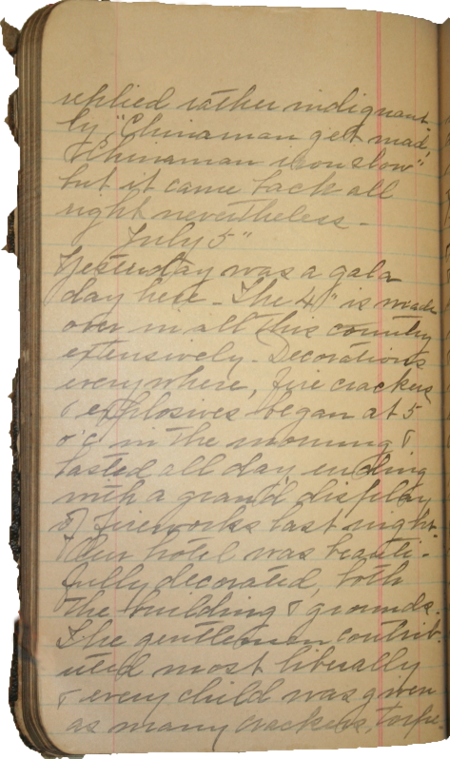 replied rather indignant-
ly, "Chinaman get mad,
Chinaman iron slow"
but it came back all
right nevertheless -
July 5"
Yesterday was a gala
day here - The 4" is made
over in all this country
extensively - Decorations
everywhere, fire crackers
& explosives began at 5
o'c in the morning &
lasted all day, ending
with a grand display
of fireworks last night.
Our hotel was beauti-
fully decorated, both
the building & grounds.
The gentlemen contrib-
uted most liberally
& every child was given
as many crackers, torpe